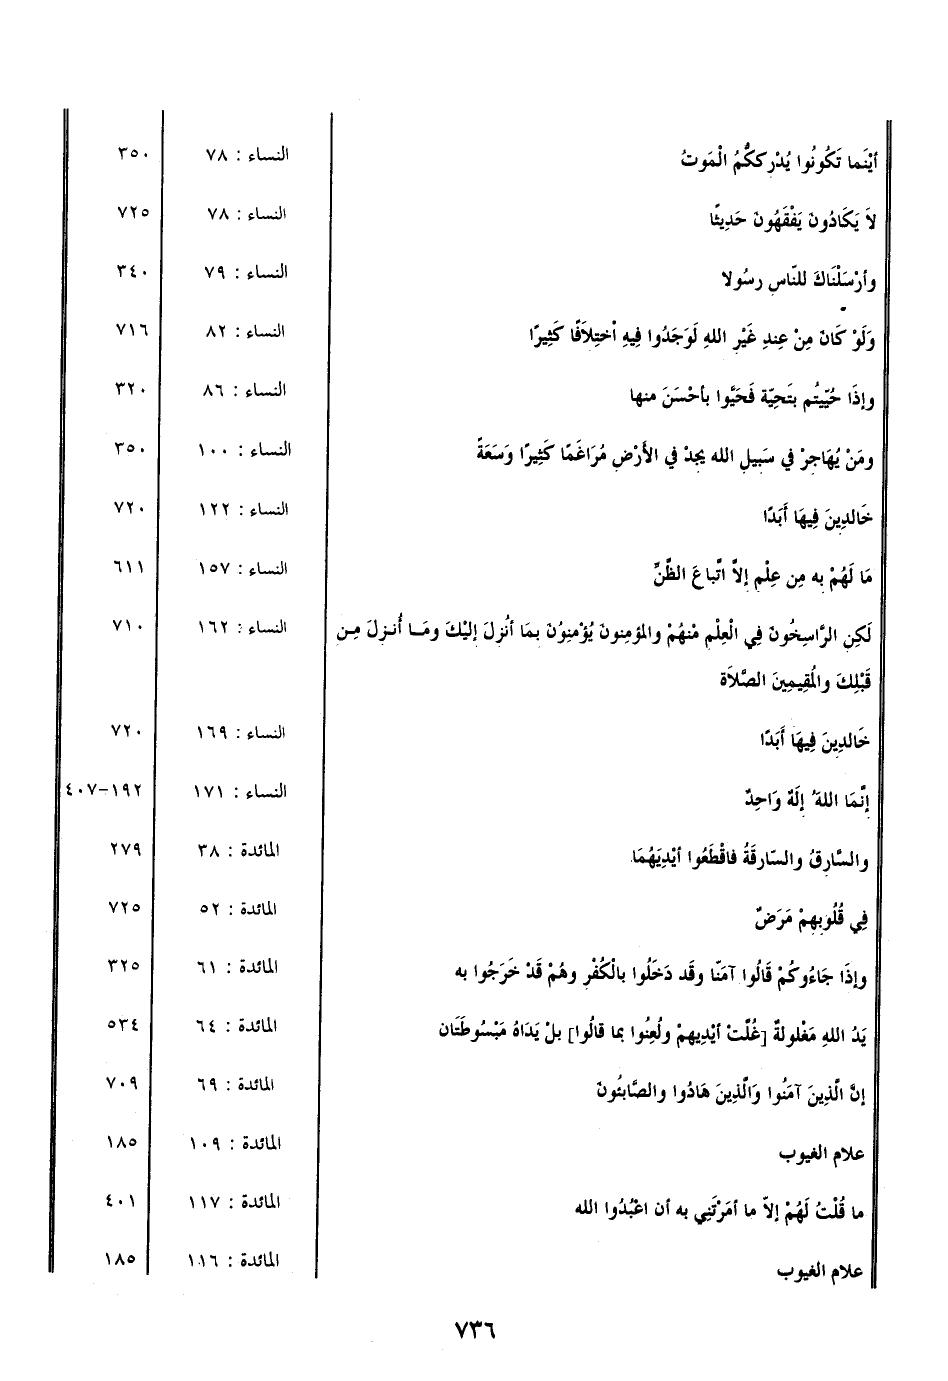 أيْنَما تَكُونُوا يُدْرِككُّمُ الْمَوتُ النساء : ٧٨ ٣٥٠
لاَ يَكَادُونَ يَفْقَهُونَ حَدِيثًا النساء : ٧٨ ٧٢٥
وأرْسَلْنَاكَ للنّاسِ رسُولا النساء : ٧٩ ٣٤٠
وَلَوْ كَانَ مِنْ عِندِ غَيْرِ اللهِ لَوَجَدُوا فِيهِ اخْتِلاَفًا كَثِيرًا النساء : ٨٢ ٧١٦
وإذَا حُيّيتُم بتَحِيّة فَحَيَّوا بأحْسَنَ منها النساء : ٨٦ ٣٢٠
ومَنْ يُهَاجِرْ في سَبيلِ الله يجدْ في الأَرْضِ مُرَاغَمًا كَثِيرًا وَسَعَةً النساء : ١٠٠ ٣٥٠
خَالدِينَ فِيهَا أَبَدًا النساء : ١٢٢ ٧٢٠
مَا لَهُمْ به مِن عِلْمٍ إلاَّ اتِّباعَ الظَّنِّ النساء : ١٥٧ ٦١١
لَكِن الرَّاسِخُونَ فِي الْعِلْمِ مْنهُمْ والمؤمِنونَ يُؤْمنِوُنَ بمَا أنْزلَ إليْكَ ومَـا أُنـزلَ مِـن النساء : ١٦٢ ٧١٠
قَبْلِكَ والمُقِيمِينَ الصَّلاَة
خَالدِينَ فِيهَا أَبَدًا النساء : ١٦٩ ٧٢٠
إنَّمَا اللهَُ إلَهٌ وَاحِدٌ النساء : ١٧١ ١٩٢-٤٠٧
والسَّارِقُ والسّارِقَةُ فاقْطَعُوا أيْدِيَهُمَا المائدة : ٣٨ ٢٧٩
فِي قُلُوبِهِمْ مَرَضٌ المائدة : ٥٢ ٧٢٥
وإذَا جَاءُوكُمْ قَالُوا آمَنّا وقَد دَخَلُوا بالْكُفْرِ وهُمْ قَدْ خَرَجُوا به المائدة : ٦١ ٣٢٥
يَدُ اللهِ مَغْلولةٌ [غُلَّتْ أيْدِيهمْ ولُعِنُوا بما قالُوا] بلْ يَدَاهُ مَبْسُوطَتَان المائدة : ٦٤ ٥٣٤
إنَّ الَّذِينَ آمَنُوا وَالَّذِينَ هَادُوا والصَّابئُونَ المائدة : ٦٩ ٧٠٩
علام الغيوب المائدة : ١٠٩ ١٨٥
ما قُلْتُ لَهُمْ إلاّ ما أمَرْتَنِي به أن اعْبُدُوا الله المائدة : ١١٧ ٤٠١
علام الغيوب المائدة : ١١٦ ١٨٥
٧٣٦